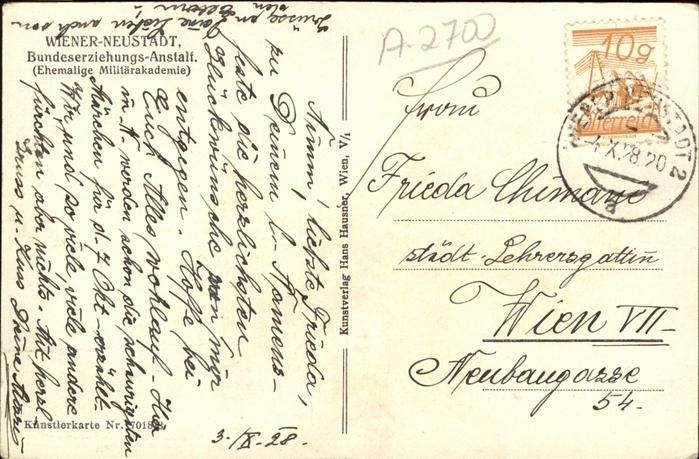 WIENER-NEUSTADT,
Bundeserziehungs-Anstalt.
(Ehemalige Militärakademie)
A-2700
10g
Österreich
WIENER NEUSTADT 2
X.28 20
Frau
Frieda
städt. Lehrersgattin
Wien VII
Neubaugasse
54.
Kunstverlag Hans Hausner, Wien, V/1
Nimm, liebste Frieda,
zu Deinem l. Namens-
feste die herzlichsten
Glückwünsche von mir
entgegen. Hoffe bei
Euch Alles wohlauf. Hier
in N. werden schon die schaurigsten
Märchen für d. 7 Okt. erzählt.
Wir und so viele, viele andere
fürchten aber nichts. Mit herzl.
Gruss u. Kuss Deine
Grüsse an Deine Lieben auch von
den Eltern!
Künstlerkarte Nr.
3./X.28.